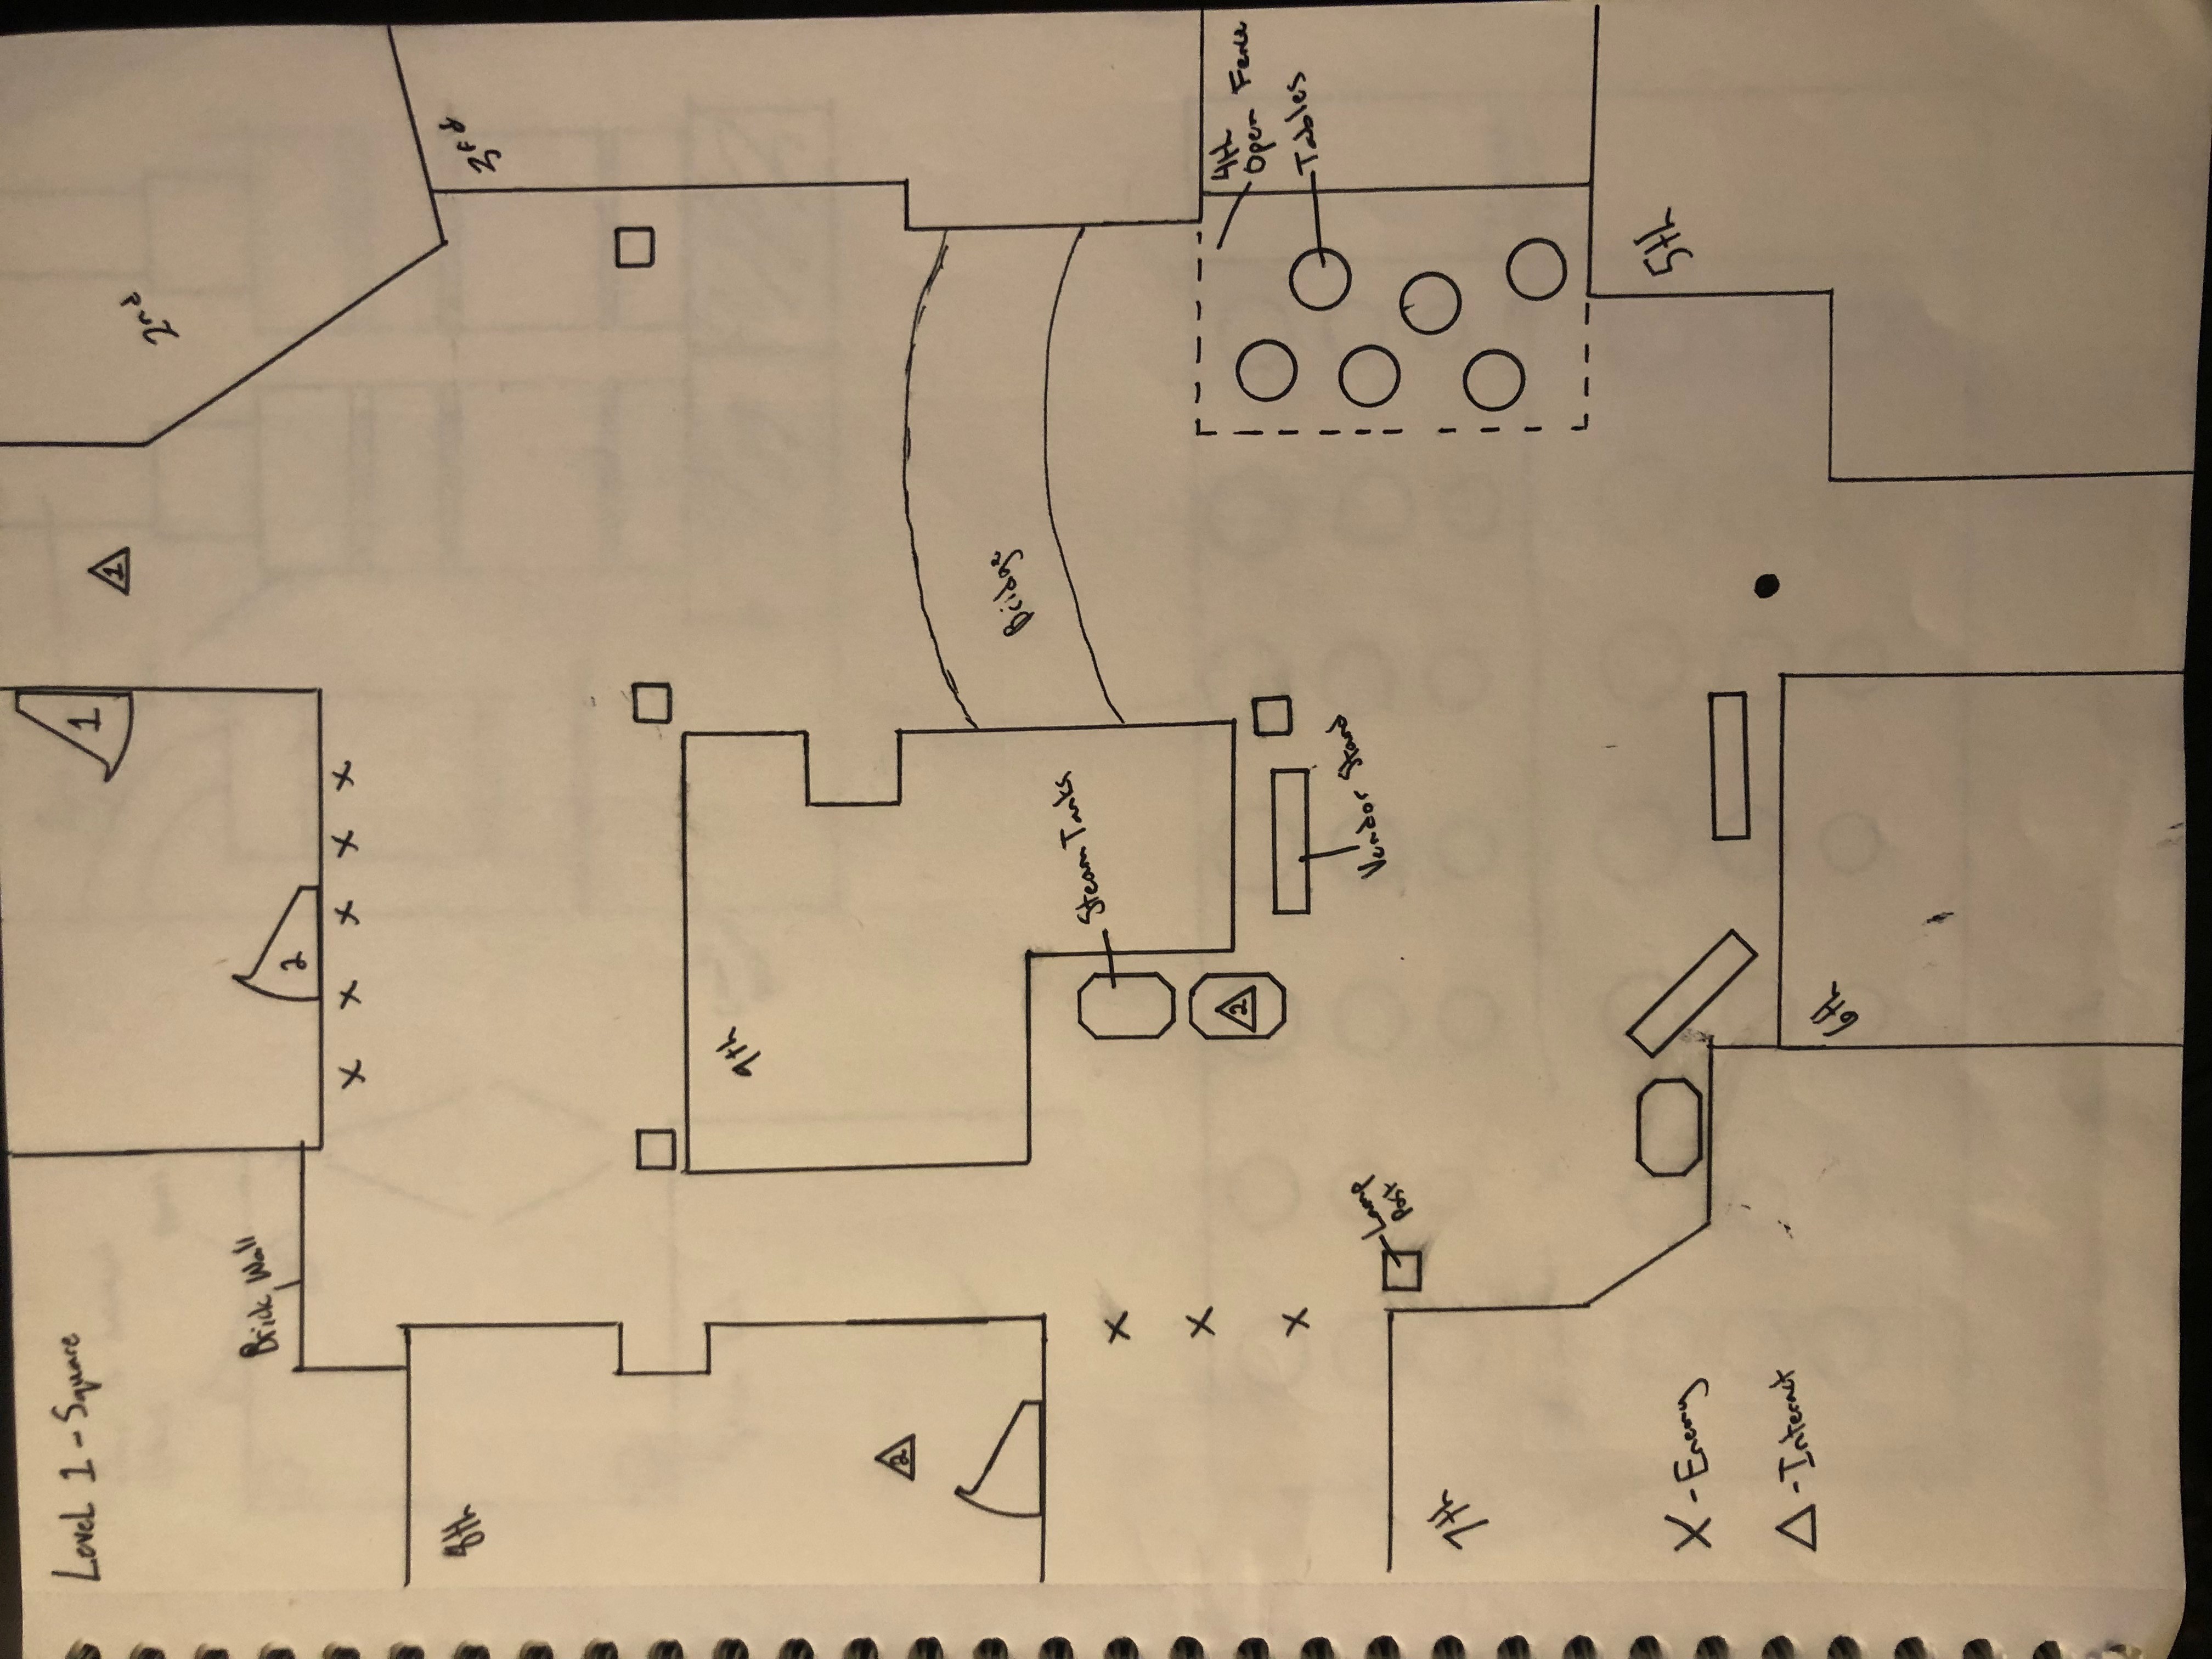 Level 1 - Square
1
1
2nd
Brick Wall
2
3rd
8th
9th
2
Bridge
Steam Tanks
2
4th
Open Fence
Tables
Vendor Stand
Lamp
Post
7th
X - Enemy
5th
△ - Interact
6th